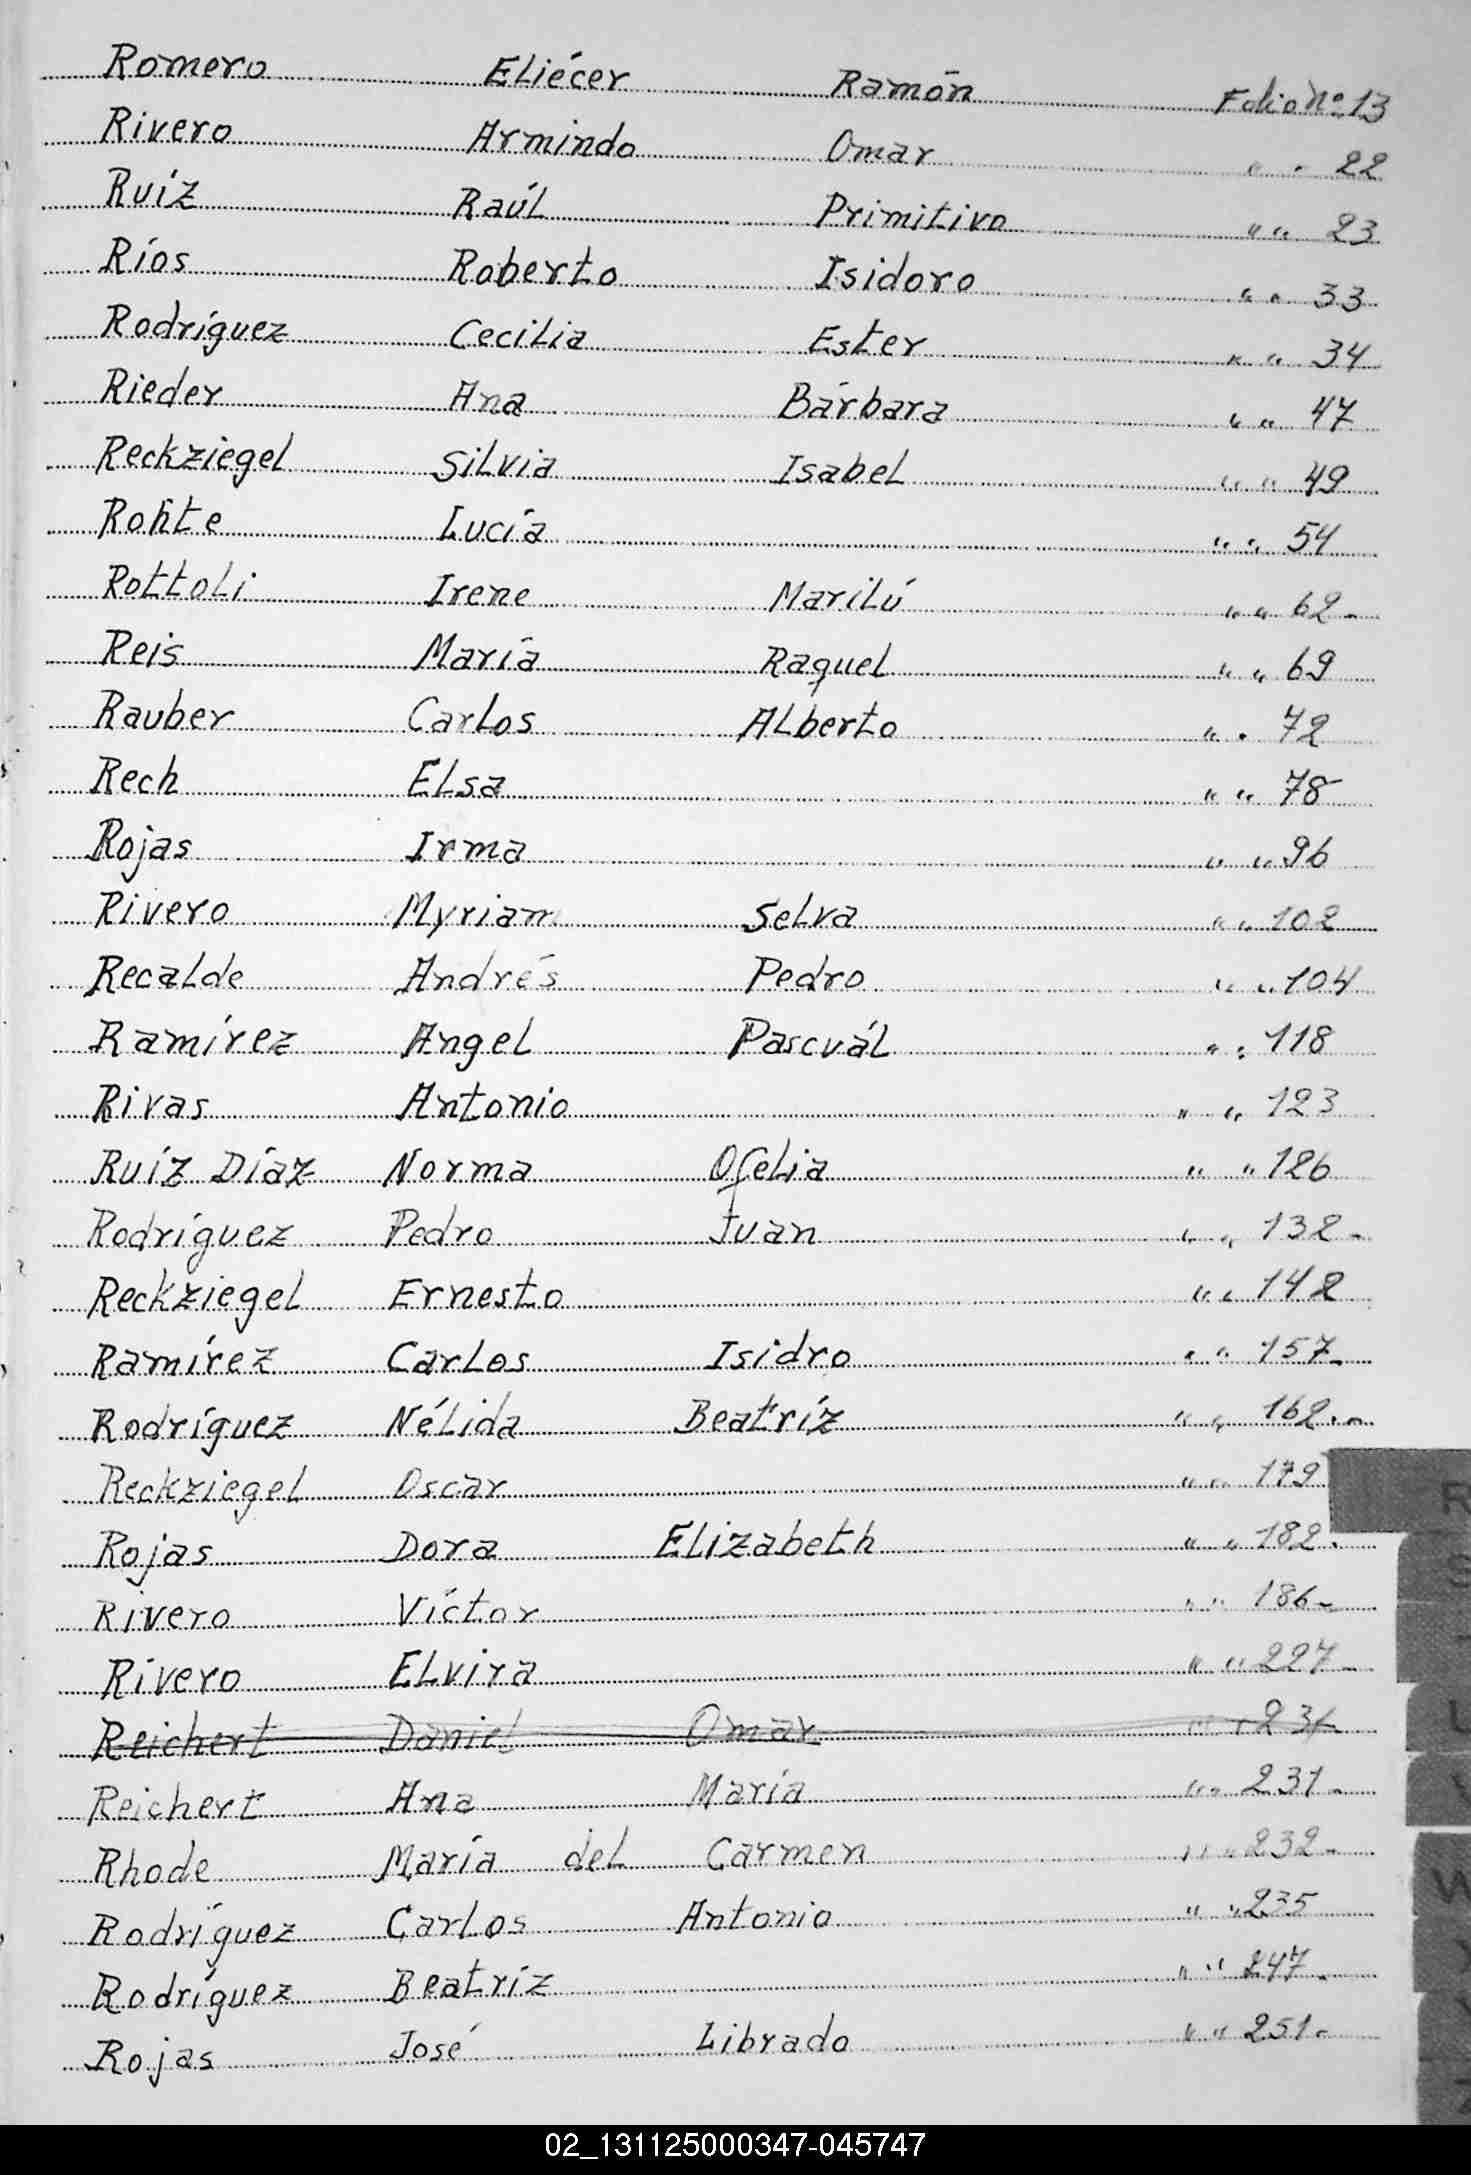 Romero Eliécer Ramón Folio Nº 13
Rivero Armindo Omar " " 22
Ruíz Raúl Primitivo " " 23
Ríos Roberto Isidoro " " 33
Rodríguez Cecilia Ester " " 34
Rieder Ana Bárbara " " 47
Reckziegel Silvia Isabel " " 49
Rohte Lucía " " 54
Rottoli Irene Marilú " " 62-
Reis María Raquel " " 69
Rauber Carlos Alberto " " 72
Rech Elsa " " 78
Rojas Irma " " 96
Rivero Myriam Selva " " 102
Recalde Andrés Pedro " " 104
Ramírez Angel Pascuál " " 118
Rivas Antonio " " 123
Ruíz Díaz Norma Ofelia " " 126
Rodríguez Pedro Juan " " 132-
Reckziegel Ernesto " " 142
Ramírez Carlos Isidro " " 157-
Rodríguez Nélida Beatríz " " 162.-
Reckziegel Oscar " " 179
Rojas Dora Elizabeth " " 182.
Rivero Víctor " " 186-
Rivero Elvira " " 227-
Reichert Daniel Omar " " 231
Reichert Ana María " " 231-
Rhode María del Carmen " " 232-
Rodríguez Carlos Antonio " " 235
Rodríguez Beatríz " " 247.
Rojas José Librado " " 251-
R
S
U
V
W
02_131125000347-045747